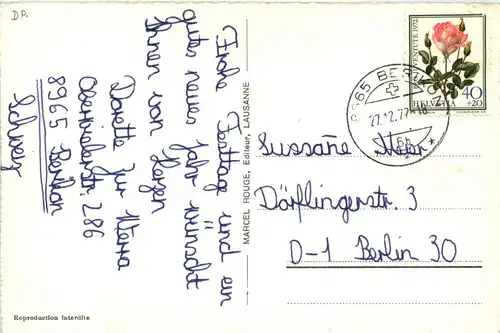 D.P.
Frohe Festtage und ein
gutes neues Jahr wünscht
Ihnen von Herzen
Dorette Zur
Oberwilerstr. 286
8965 Berikon
Schweiz
MARCEL ROUGE, Editeur, LAUSANNE
Reproduction interdite
8965 BERIKON
27.12.72
JUVENTUTE 1972
40
+20
HELVETIA
Dörflingerstr. 3
D-1 Berlin 30